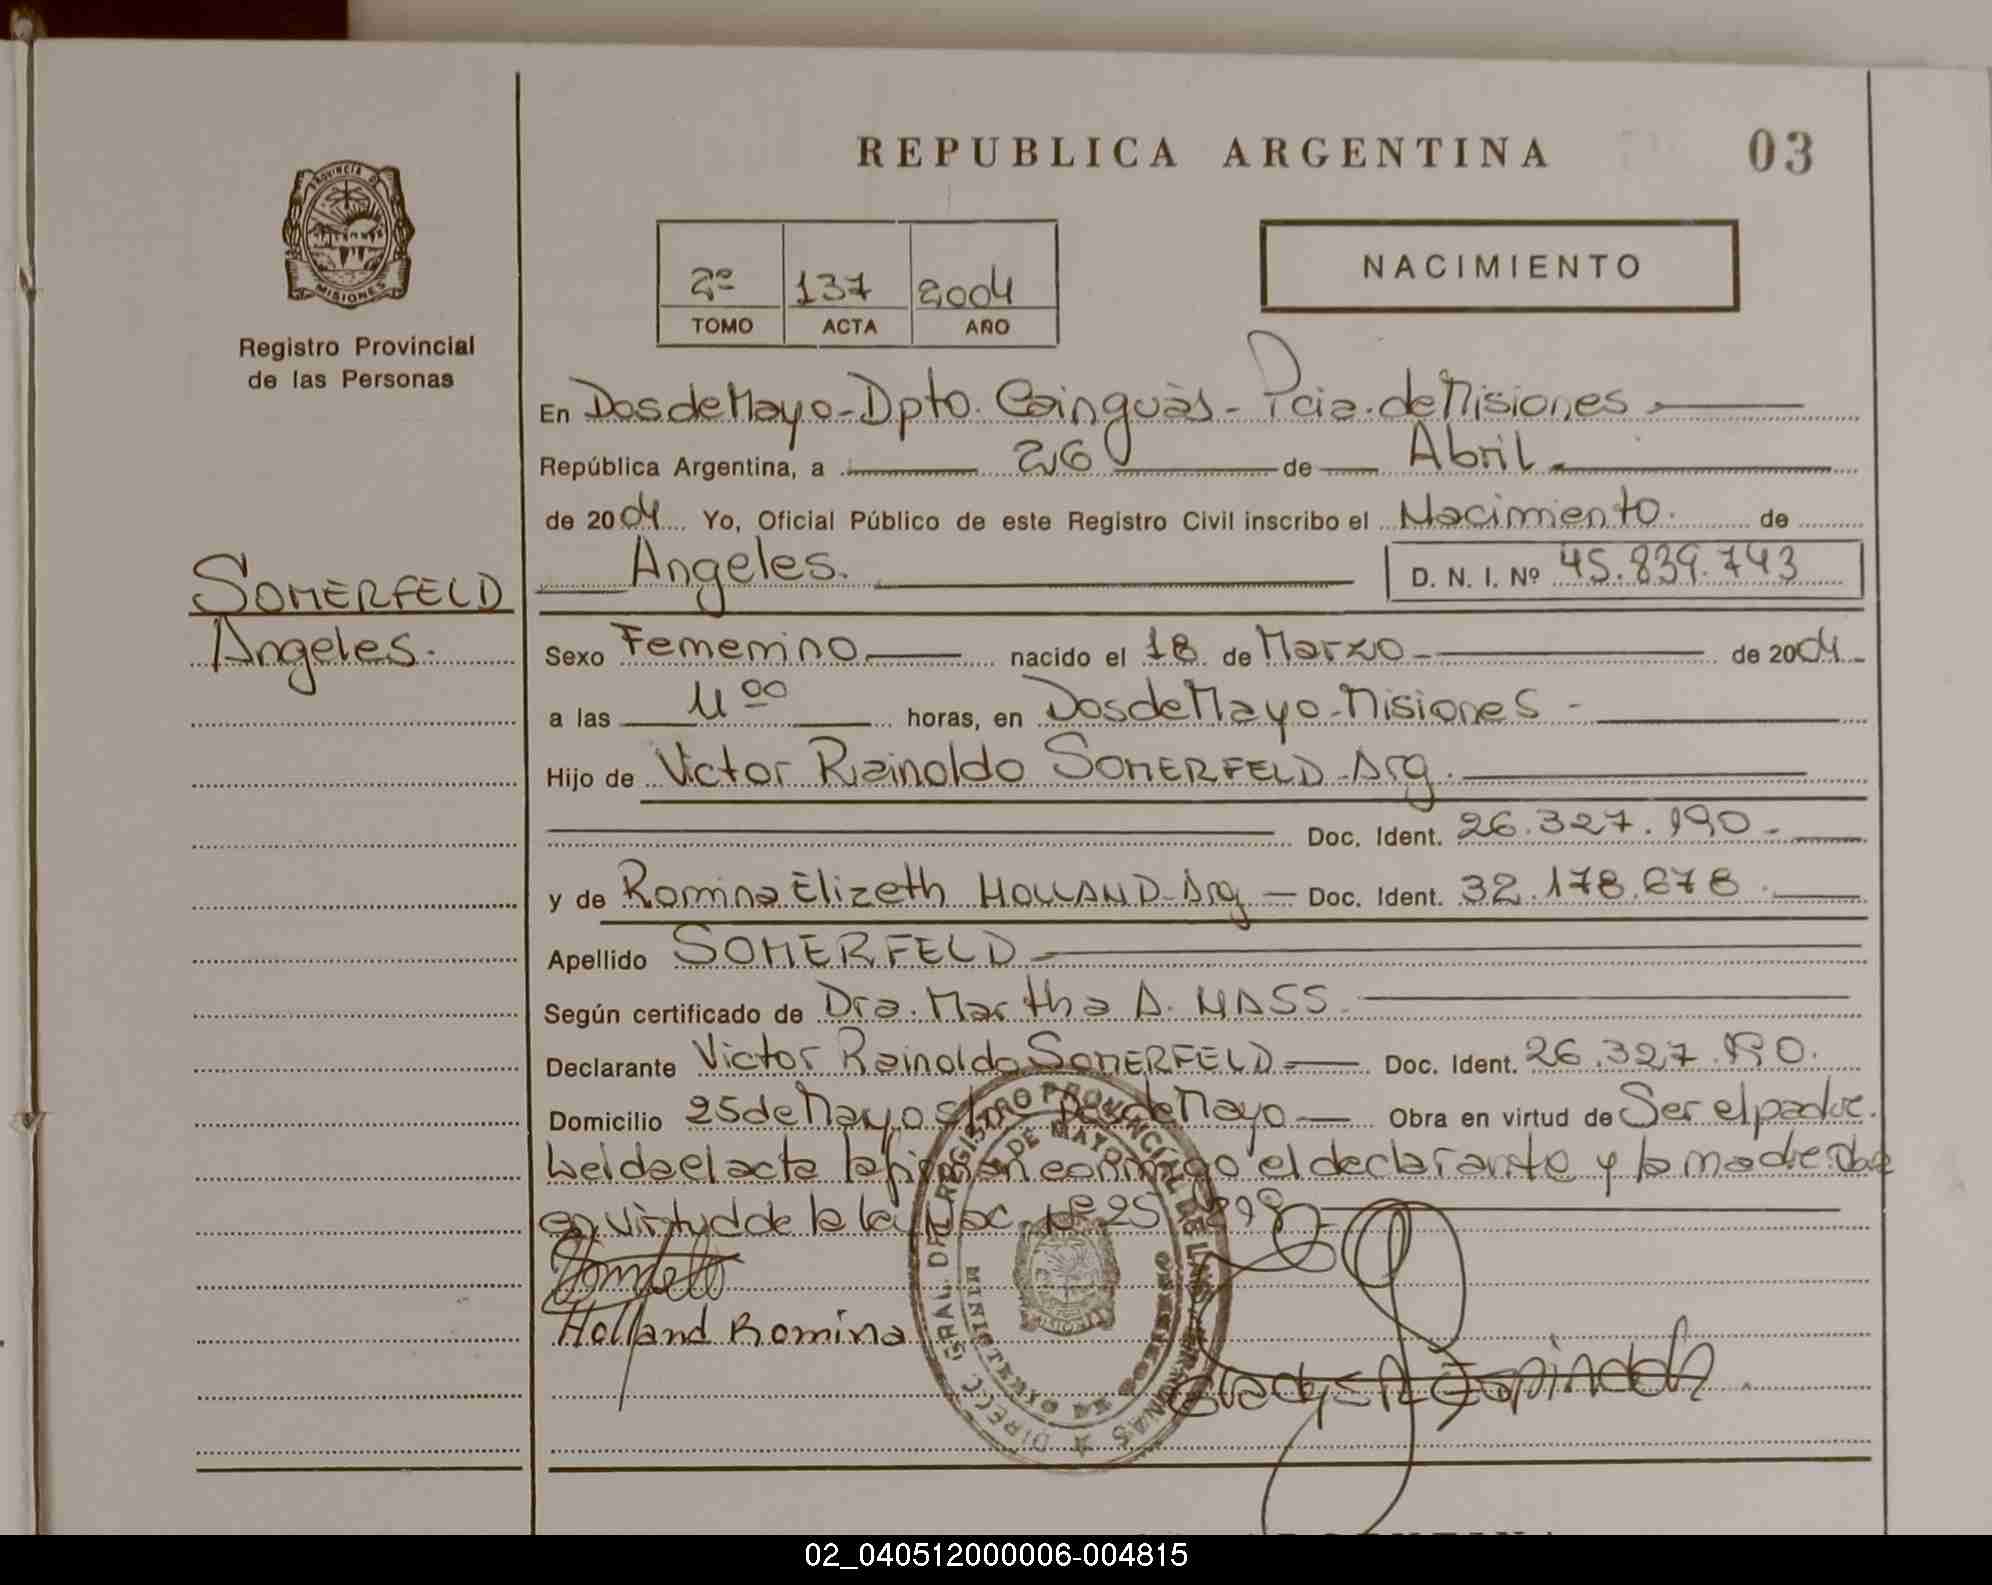 REPUBLICA ARGENTINA 03
PROVINCIA DE
MISIONES
Registro Provincial
de las Personas
NACIMIENTO
2º 137 2004
TOMO ACTA AÑO
En Dos de Mayo - Dpto. Cainguás - Pcia. de Misiones
República Argentina, a 26 de Abril
de 2004 Yo, Oficial Público de este Registro Civil inscribo el Nacimiento. de
Angeles. D. N. I. Nº 45.839.743
SOMERFELD
Angeles.
Sexo Femenino nacido el 18 de Marzo de 2004
a las 11 00 horas, en Dos de Mayo - Misiones -
Hijo de Victor Rainoldo SOMERFELD - Arg.
Doc. Ident. 26.327.190 -
y de Romina Elizeth HOLLAND - Arg - Doc. Ident. 32.178.678 .
Apellido SOMERFELD
Según certificado de Dra. Martha A. MASS
Declarante Victor Rainoldo SOMERFELD Doc. Ident. 26.327.190.
Domicilio 25 de Mayo s/n Dos de Mayo Obra en virtud de Ser el padre.
Leida el acta la firman conmigo el declarante y la madre. Obra
en virtud de la ley Nac. Nº 25
Holland Romina
Gladys R Espindola
DIRECC. GRAL. DEL REGISTRO PROVINCIAL DE LAS PERSONAS
2 DE MAYO
MINISTERIO DE GOBIERNO
02_040512000006-004815